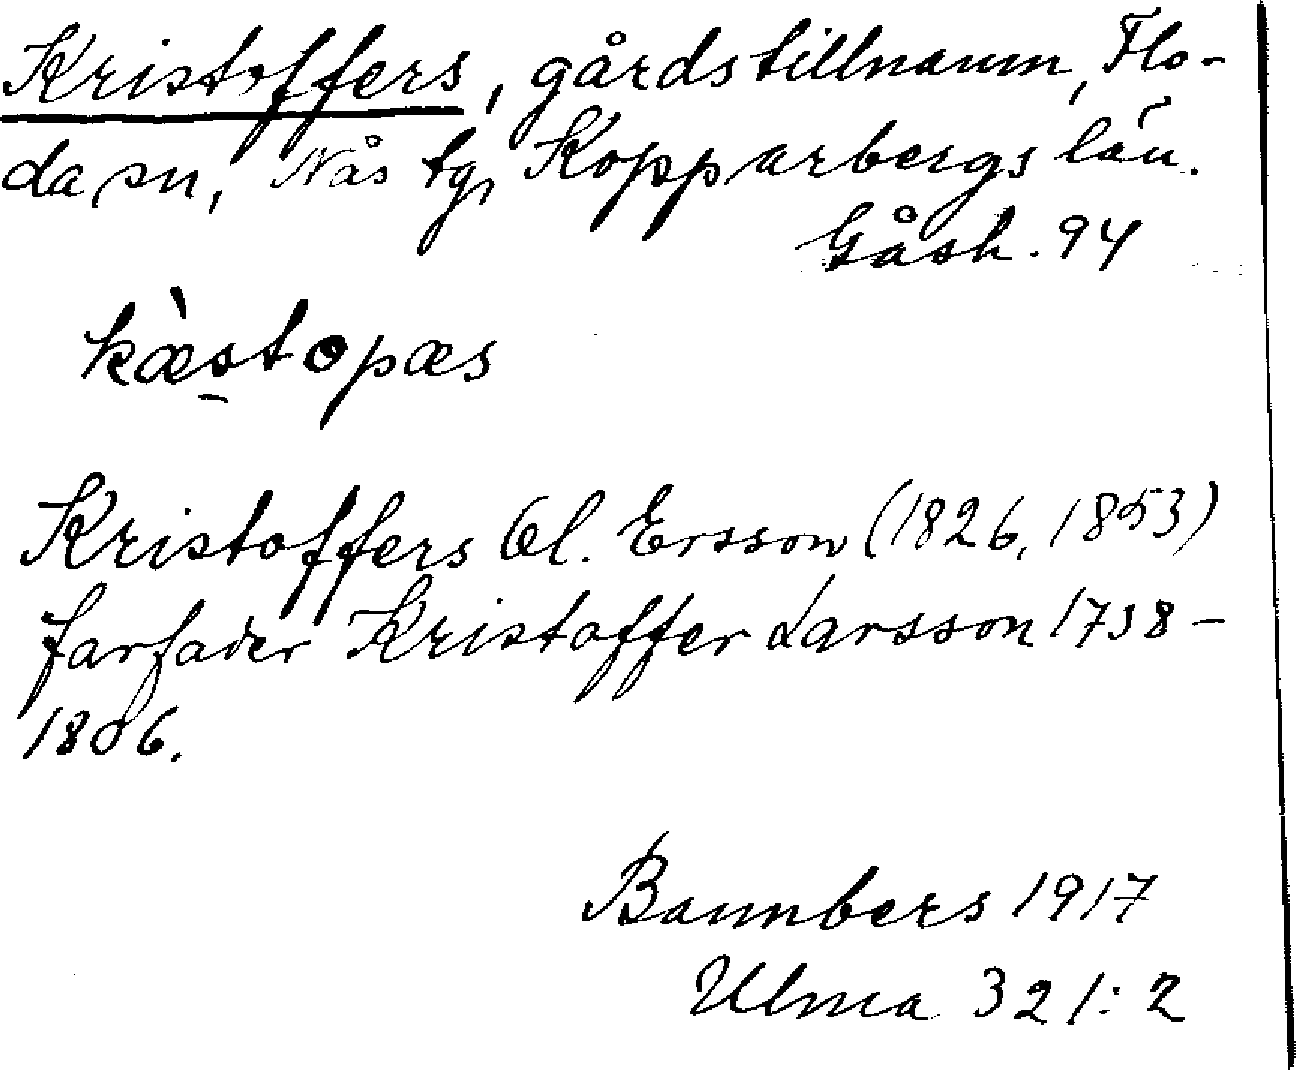 Kristoffers, gårdstillnamn, Flo-
da sn, Nås tg, Kopparbergs län.
Gåsh. 94
kæ̀stopæs
Kristoffers Ol. Ersson (1826, 1853)
farfader Kristoffer Larsson 1738-
1806.
Bannbers 1917
Ulma 321:2